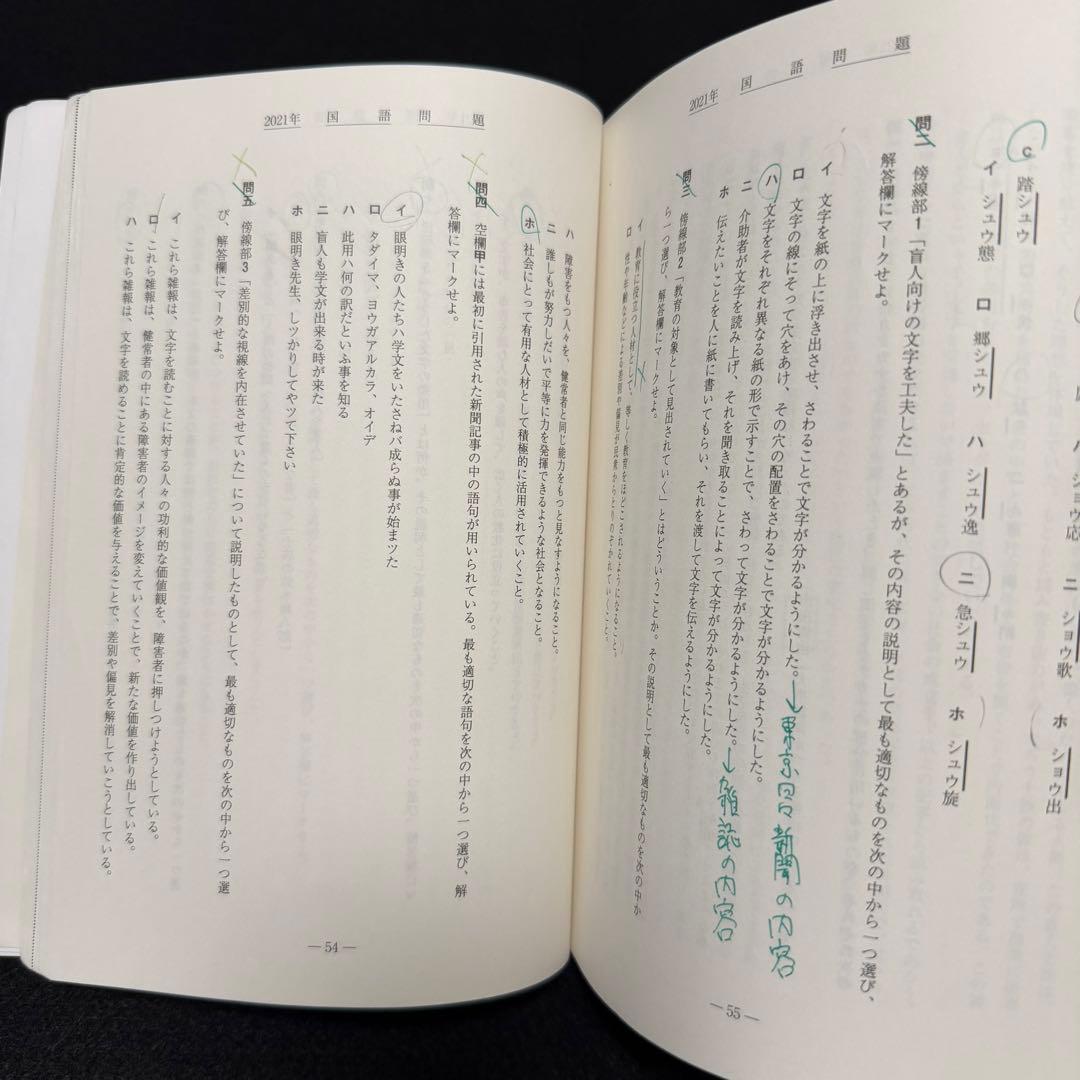 2021年 国語問題
C 踏シュウ
イ シュウ態 ロ 郷シュウ ハ シュウ逸 ニ 急シュウ ホ シュウ旋
ショウ応 ニ ショウ歌 ホ ショウ出
問二 傍線部1「盲人向けの文字を工夫した」とあるが、その内容の説明として最も適切なものを次の中から一つ選び、
解答欄にマークせよ。
イ 文字を紙の上に浮き出させ、さわることで文字が分かるようにした。→東京日日新聞の内容
ロ 文字の線にそって穴をあけ、その穴の配置をさわることで文字が分かるようにした。
ハ 文字をそれぞれ異なる紙の形で示すことで、さわって文字が分かるようにした。
ニ 介助者が文字を読み上げ、それを聞き取ることによって文字が分かるようにした。→雑誌の内容
ホ 伝えたいことを人に紙に書いてもらい、それを渡して文字を伝えるようにした。
問三 傍線部2「教育の対象として見出されていく」とはどういうことか。その説明として最も適切なものを次の中か
ら一つ選び、解答欄にマークせよ。
イ 教育に役立つ人材として、等しく教育をほどこされるようになること。
ロ 性や年齢などによる差別や偏見が民衆からとりのぞかれていくこと。
― 55 ―
2021年 国語問題
ハ 障害をもつ人々を、健常者と同じ能力をもっと見なすようになること。
ニ 誰しもが努力しだいで平等に力を発揮できるような社会となること。
ホ 社会にとって有用な人材として積極的に活用されていくこと。
問四 空欄甲には最初に引用された新聞記事の中の語句が用いられている。最も適切な語句を次の中から一つ選び、解
答欄にマークせよ。
イ 眼明きの人たちハ学文をいたさねバ成らぬ事が始まツた
ロ タダイマ、ヨウガアルカラ、オイデ
ハ 此用ハ何の訳だといふ事を知る
ニ 盲人も学文が出来る時が来た
ホ 眼明き先生、しツかりしてやツて下さい
問五 傍線部3「差別的な視線を内在させていた」について説明したものとして、最も適切なものを次の中から一つ選
び、解答欄にマークせよ。
イ これら雑報は、文字を読むことに対する人々の功利的な価値観を、障害者に押しつけようとしている。
ロ これら雑報は、健常者の中にある障害者のイメージを変えていくことで、新たな価値を作り出している。
ハ これら雑報は、文字を読めることに肯定的な価値を与えることで、差別や偏見を解消していこうとしている。
― 54 ―